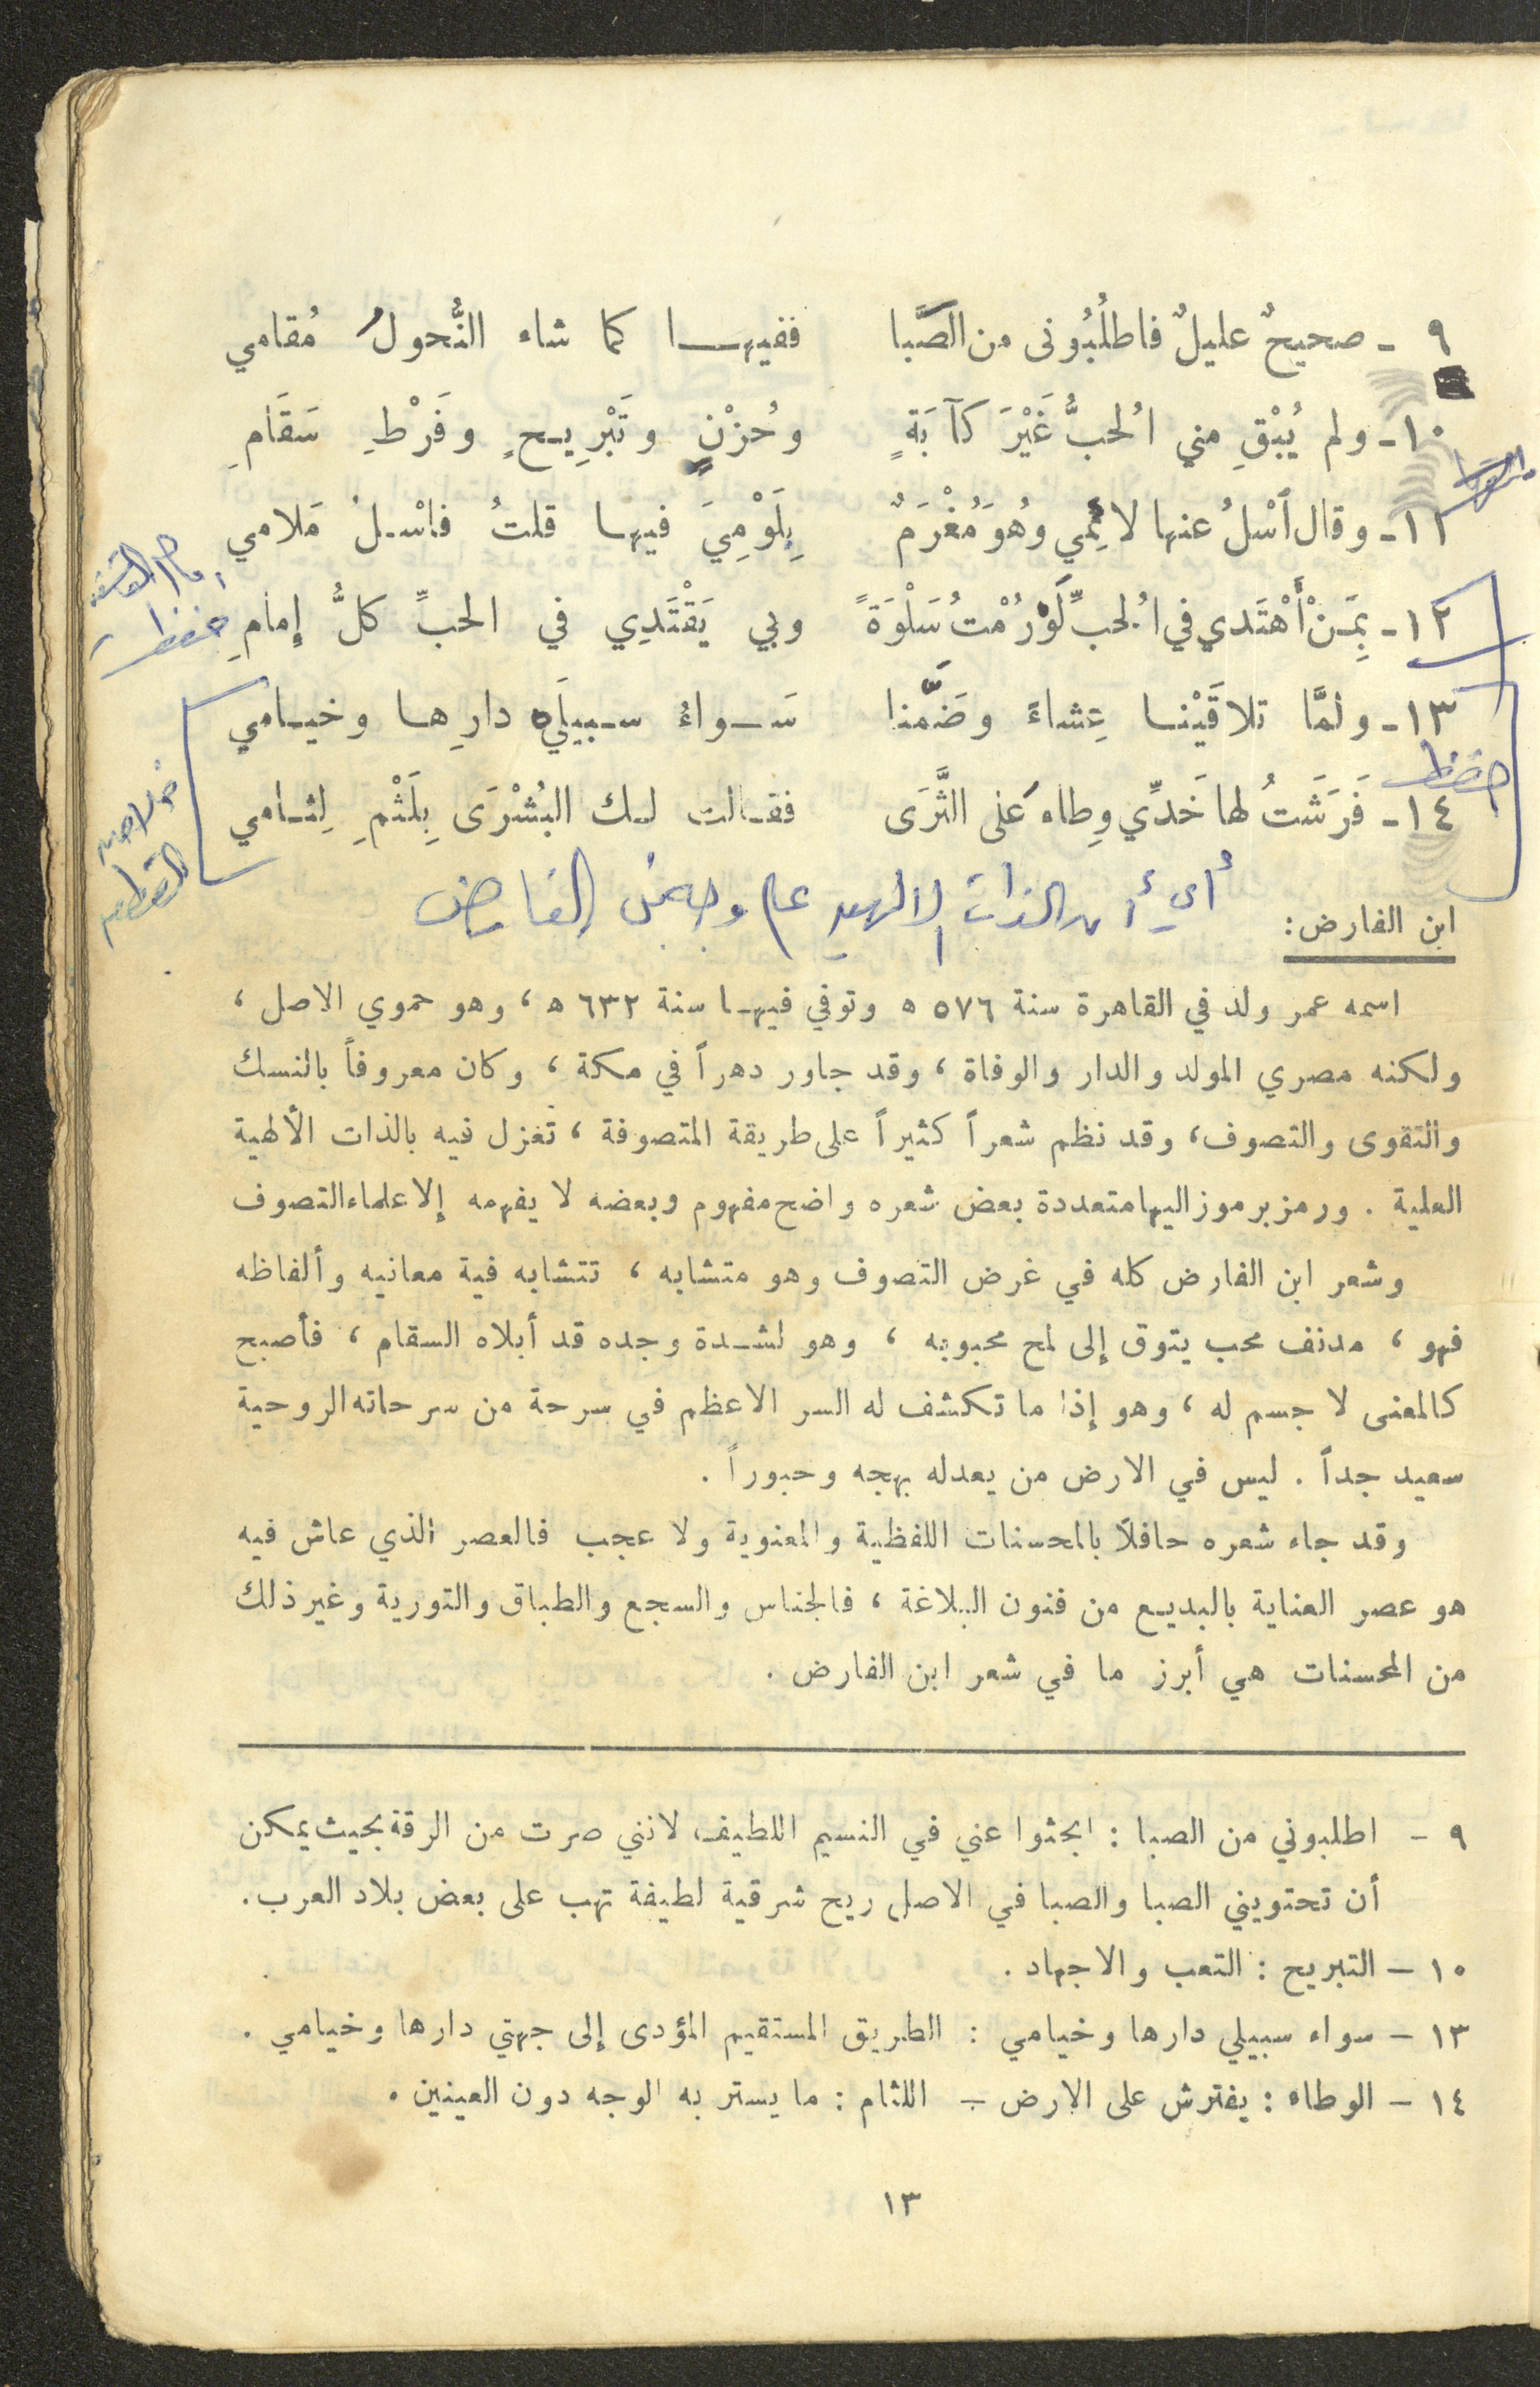 ٩ - صحيحٌ عليلٌ فاطلُبُونى من الصَّبا ففيهــا كما شاء النُّحولُ مُقامي
١٠ - ولم يُبْقِ مني الُحبُّ غَيْرَ كآبَةٍ وحُزْنٍ وتَبْرِيحٍ وفَرْطِ سَقَامِ
١١ - وقال ٱسْلُ عنها لائِمي وهُوَ مُغْرَمٌ بِلَوْمِيَ فيها قلتُ فاسْلُ مَلامي
١٢ - بِمَنْ أَهْتَدي في الُحبِّ لَوْ رُمْتُ سَلْوَةً وبي يَقْتَدِي في الحبِّ كلُّ إِمامِ
حفظ
١٣ - ولمَّا تلاقَيْنا عِشاءً وضَمَّنا سَواءُ سبيلَي دارِها وخيامي
حفظ
١٤ - فَرَشَتُ لها خَدِّي وِطاء عَلى الثَّرَى فقالت لك البُشْرَى بِلَثْمِ لِثامي
ابن الفارض :
اسمه عمر ولد في القاهرة سنة ٥٧٦ ه وتوفي فيها سنة ٦٣٢ ه ، وهو حموي الاصل ،
ولكنه مصري المولد والدار والوفاة ، وقد جاور دهراً في مكة ، وكان معروفاً بالنسك
والتقوى والتصوف ، وقد نظم شعراً كثيراً على طريقة المتصوفة ، تغزل فيه بالذات الألهية
العلية . ورمز برموز اليها متعددة بعض شعره واضح مفهوم وبعضه لا يفهمه إلا علماء التصوف
وشعر ابن الفارض كله في غرض التصوف وهو متشابه ، تتشابه فية معانيه وألفاظه
فهو ، مدنف محب يتوق إلى لمح محبوبه ، وهو لشدة وجده قد أبلاه السقام ، فأصبح
كالمعنى لا جسم له ، وهو إذا ما تكشف له السر الاعظم في سرحة من سرحاته الروحية
سعيد جداً . ليس في الارض من يعدله بهجه وحبوراً .
وقد جاء شعره حافلاً بالمحسنات اللفظية والمعنوية ولا عجب فالعصر الذي عاش فيه
هو عصر العناية بالبديع من فنون البلاغة ، فالجناس والسجع والطباق والتورية وغير ذلك
من المحسنات هي أبرز ما في شعر ابن الفارض .
٩ - اطلبوني من الصبا : ابحثوا عني في النسيم اللطيف ، لانني صرت من الرقة بحيث يمكن
أن تحتويني الصبا والصبا في الاصل ريح شرقية لطيفة تهب على بعض بلاد العرب .
١٠ - التبريح : التعب والاجهاد .
١٣ - سواء سبيلي دارها وخيامي : الطريق المستقيم المؤدى إلى جهتي دارها وخيامي .
١٤ - الوطاء : يفترش على الارض - اللثام : ما يستر به الوجه دون العينين .
١٣